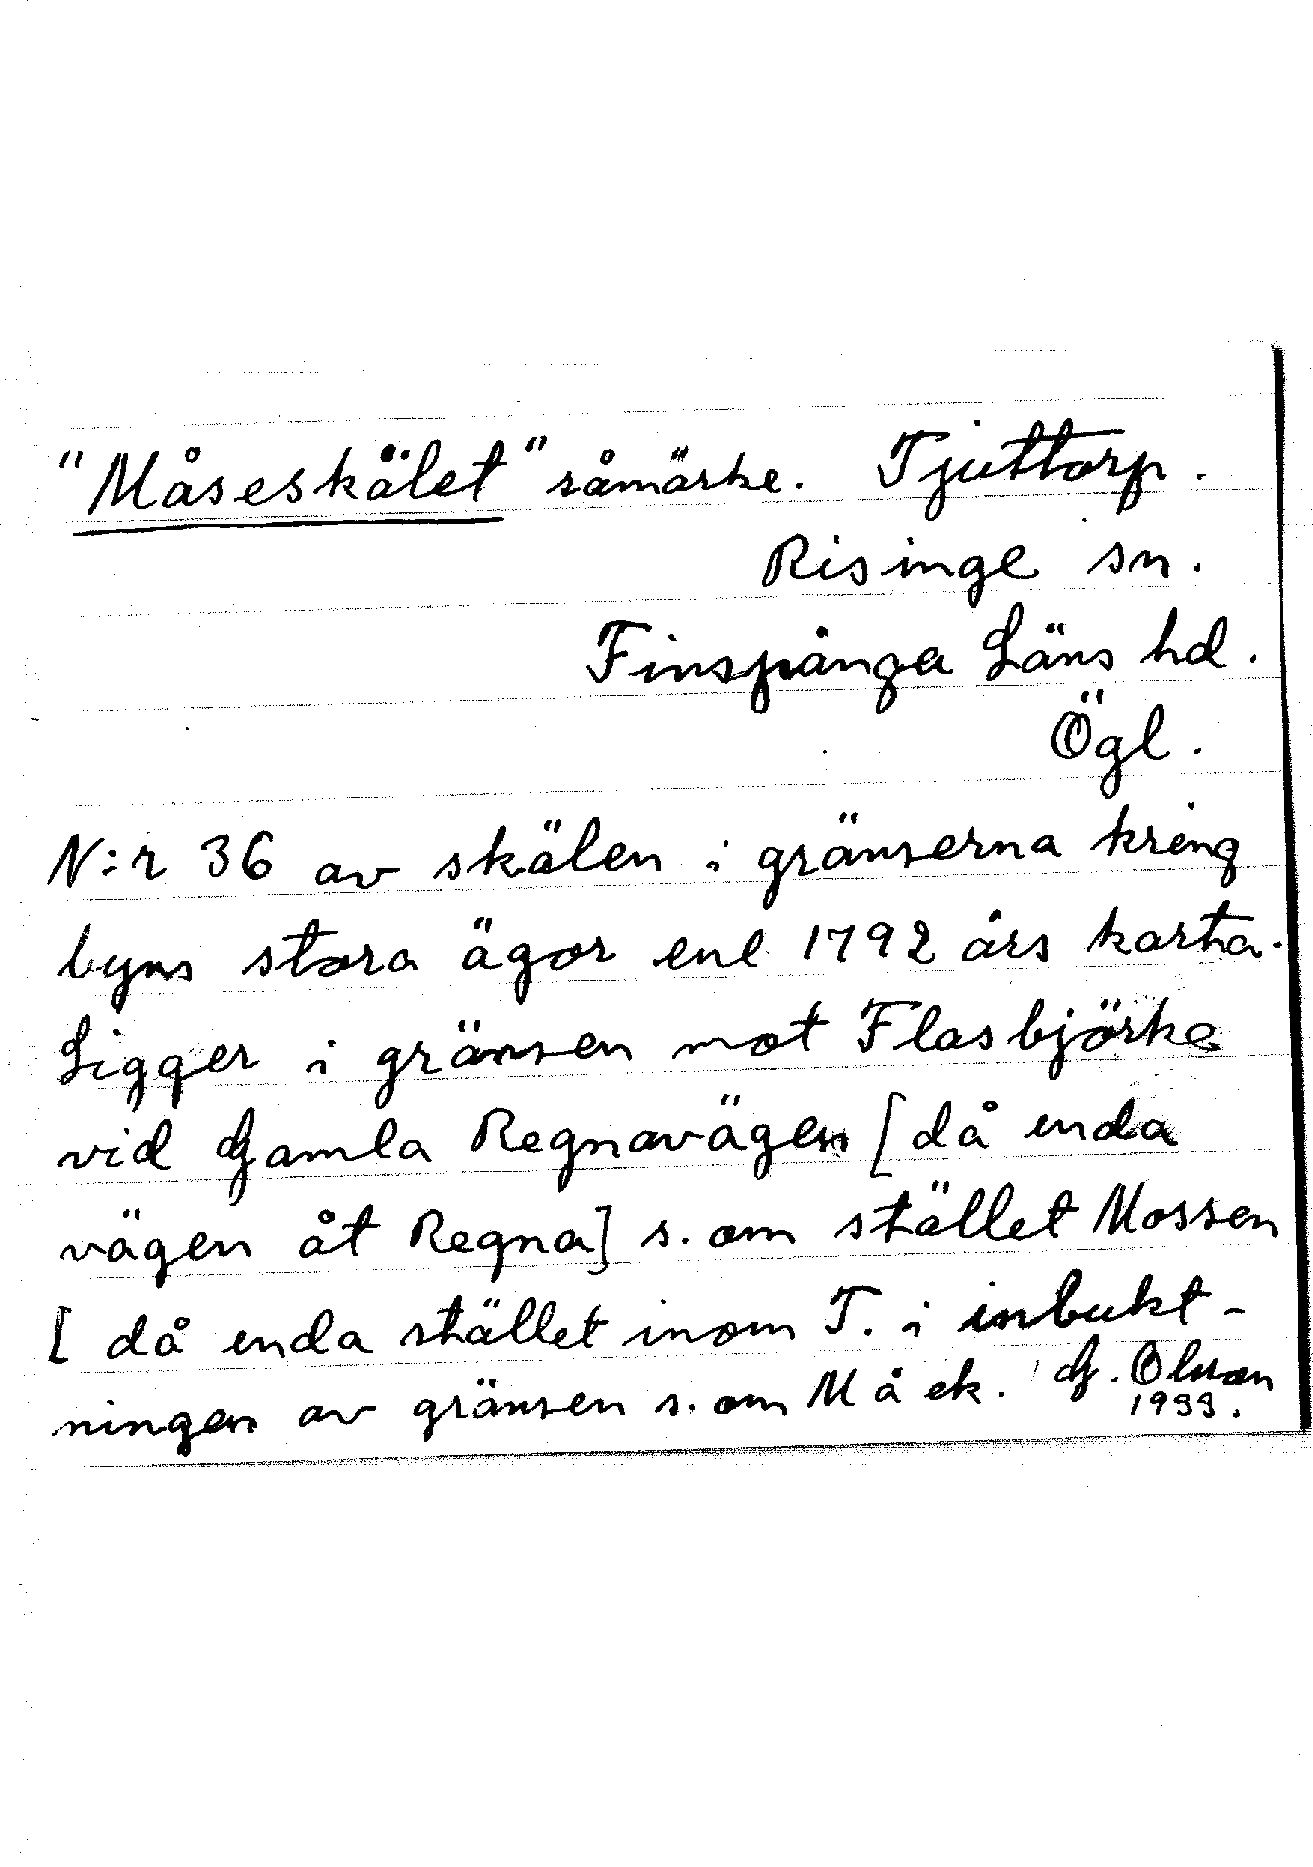 "Måseskälet" råmärke. Tjuttorp.
Risinge sn.
Finspånga Läns hd.
Ögl.
N:r 36 av skälen i gränserna kring
byns stora ägor enl 1792 års karta.
Ligger i gränsen mot Flasbjörke
vid Gamla Regnavägen [då enda
vägen åt Regna] s. om stället Mossen
[då enda stället inom T. i inbukt-
ningen av gränsen s. om M å ek. G. Olsson
1933.